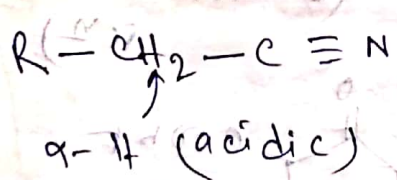 R - CH2 - C ≡ N
α- H (acidic)